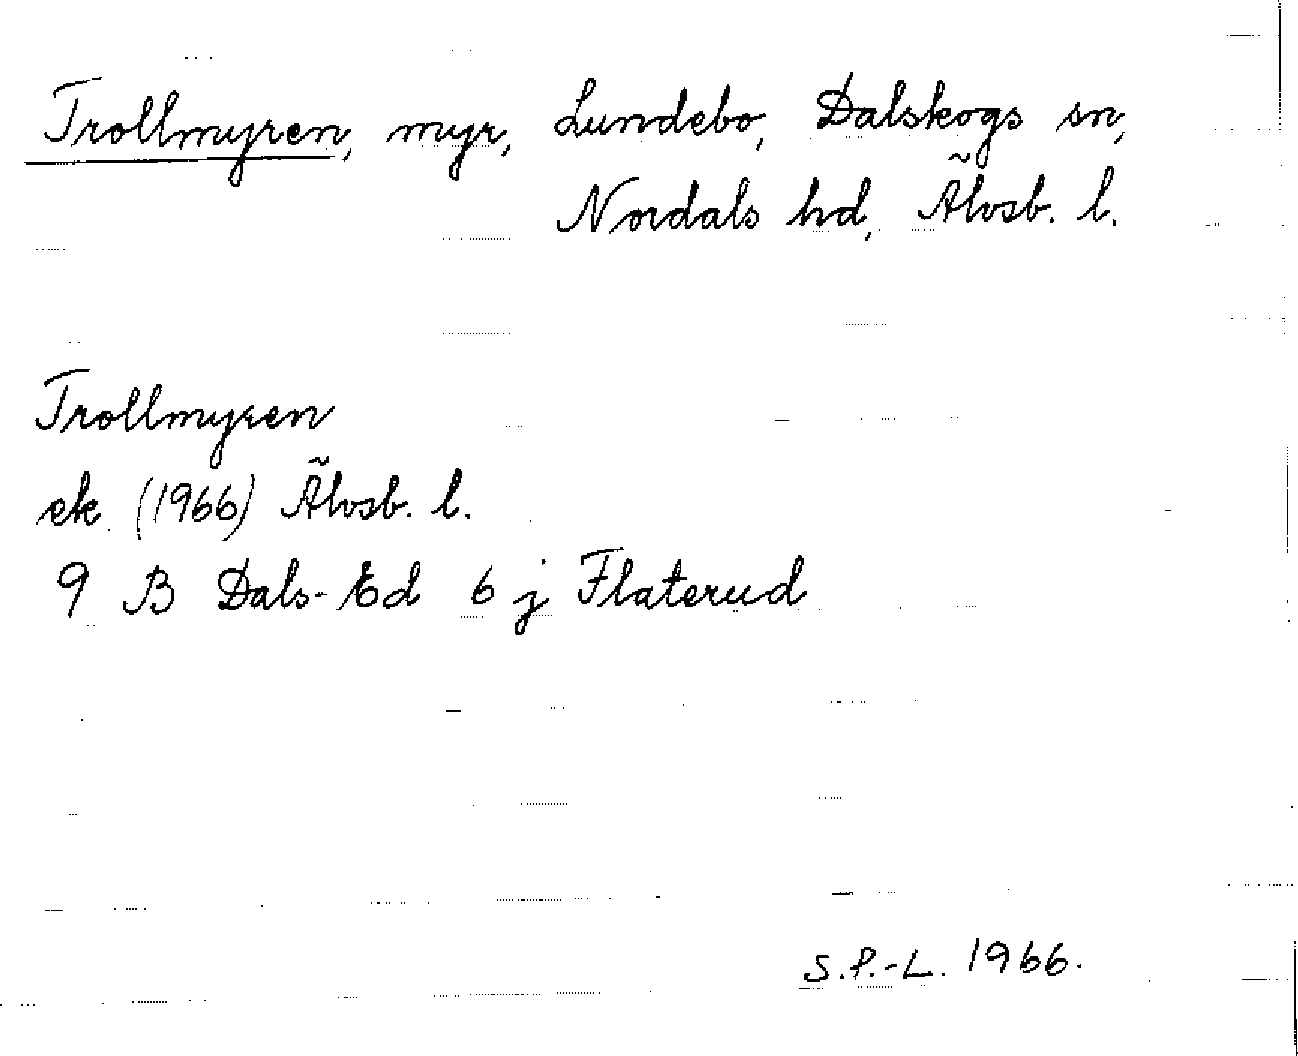 Trollmyren, myr, Lundebo, Dalskogs sn,
Nordals hd, Älvsb. l.
Trollmyren
ek (1966) Älvsb. l.
9 B Dals-Ed 6 j Flaterud
S.P.-L. 1966.